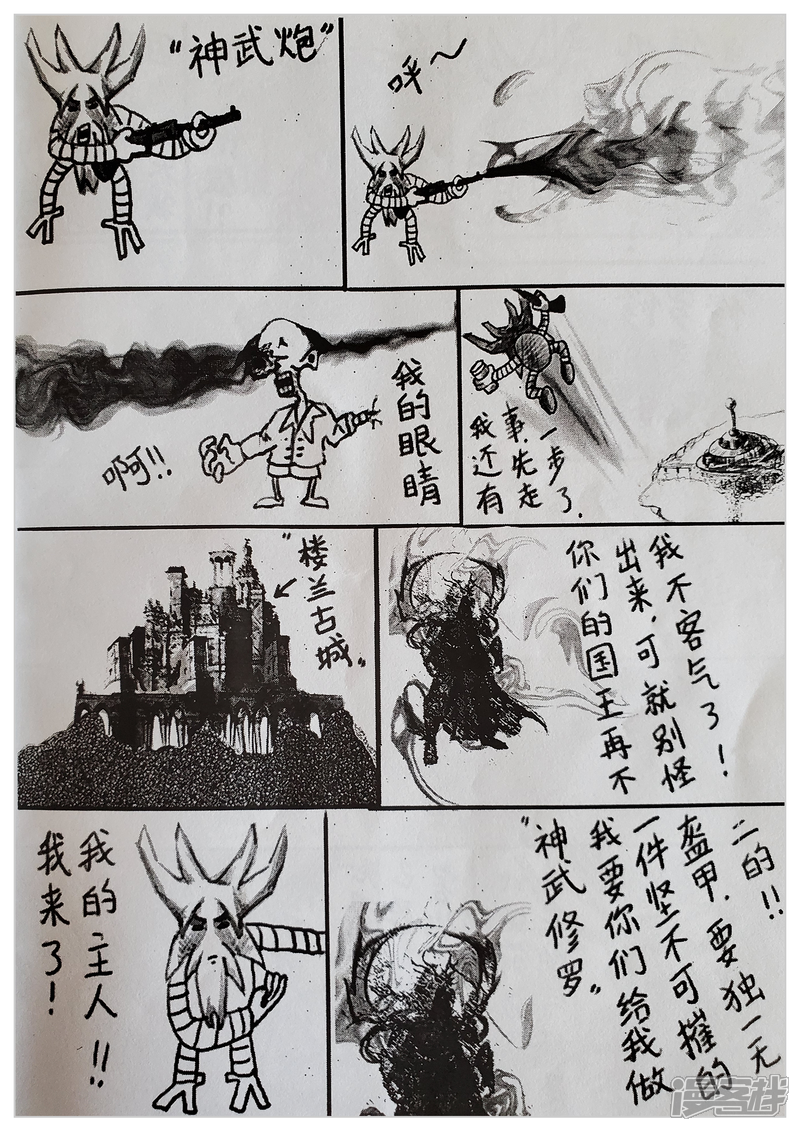 "神武炮"
呼～
啊!!
我的眼睛
我还有
事,先走
一步了.
"楼兰古城"
你们的国王再不
出来,可就别怪
我不客气了!
我来了!
我的主人!!
"神武修罗"
我要你们给我做
一件坚不可摧的
盔甲,要独一无
二的!!
漫客栈